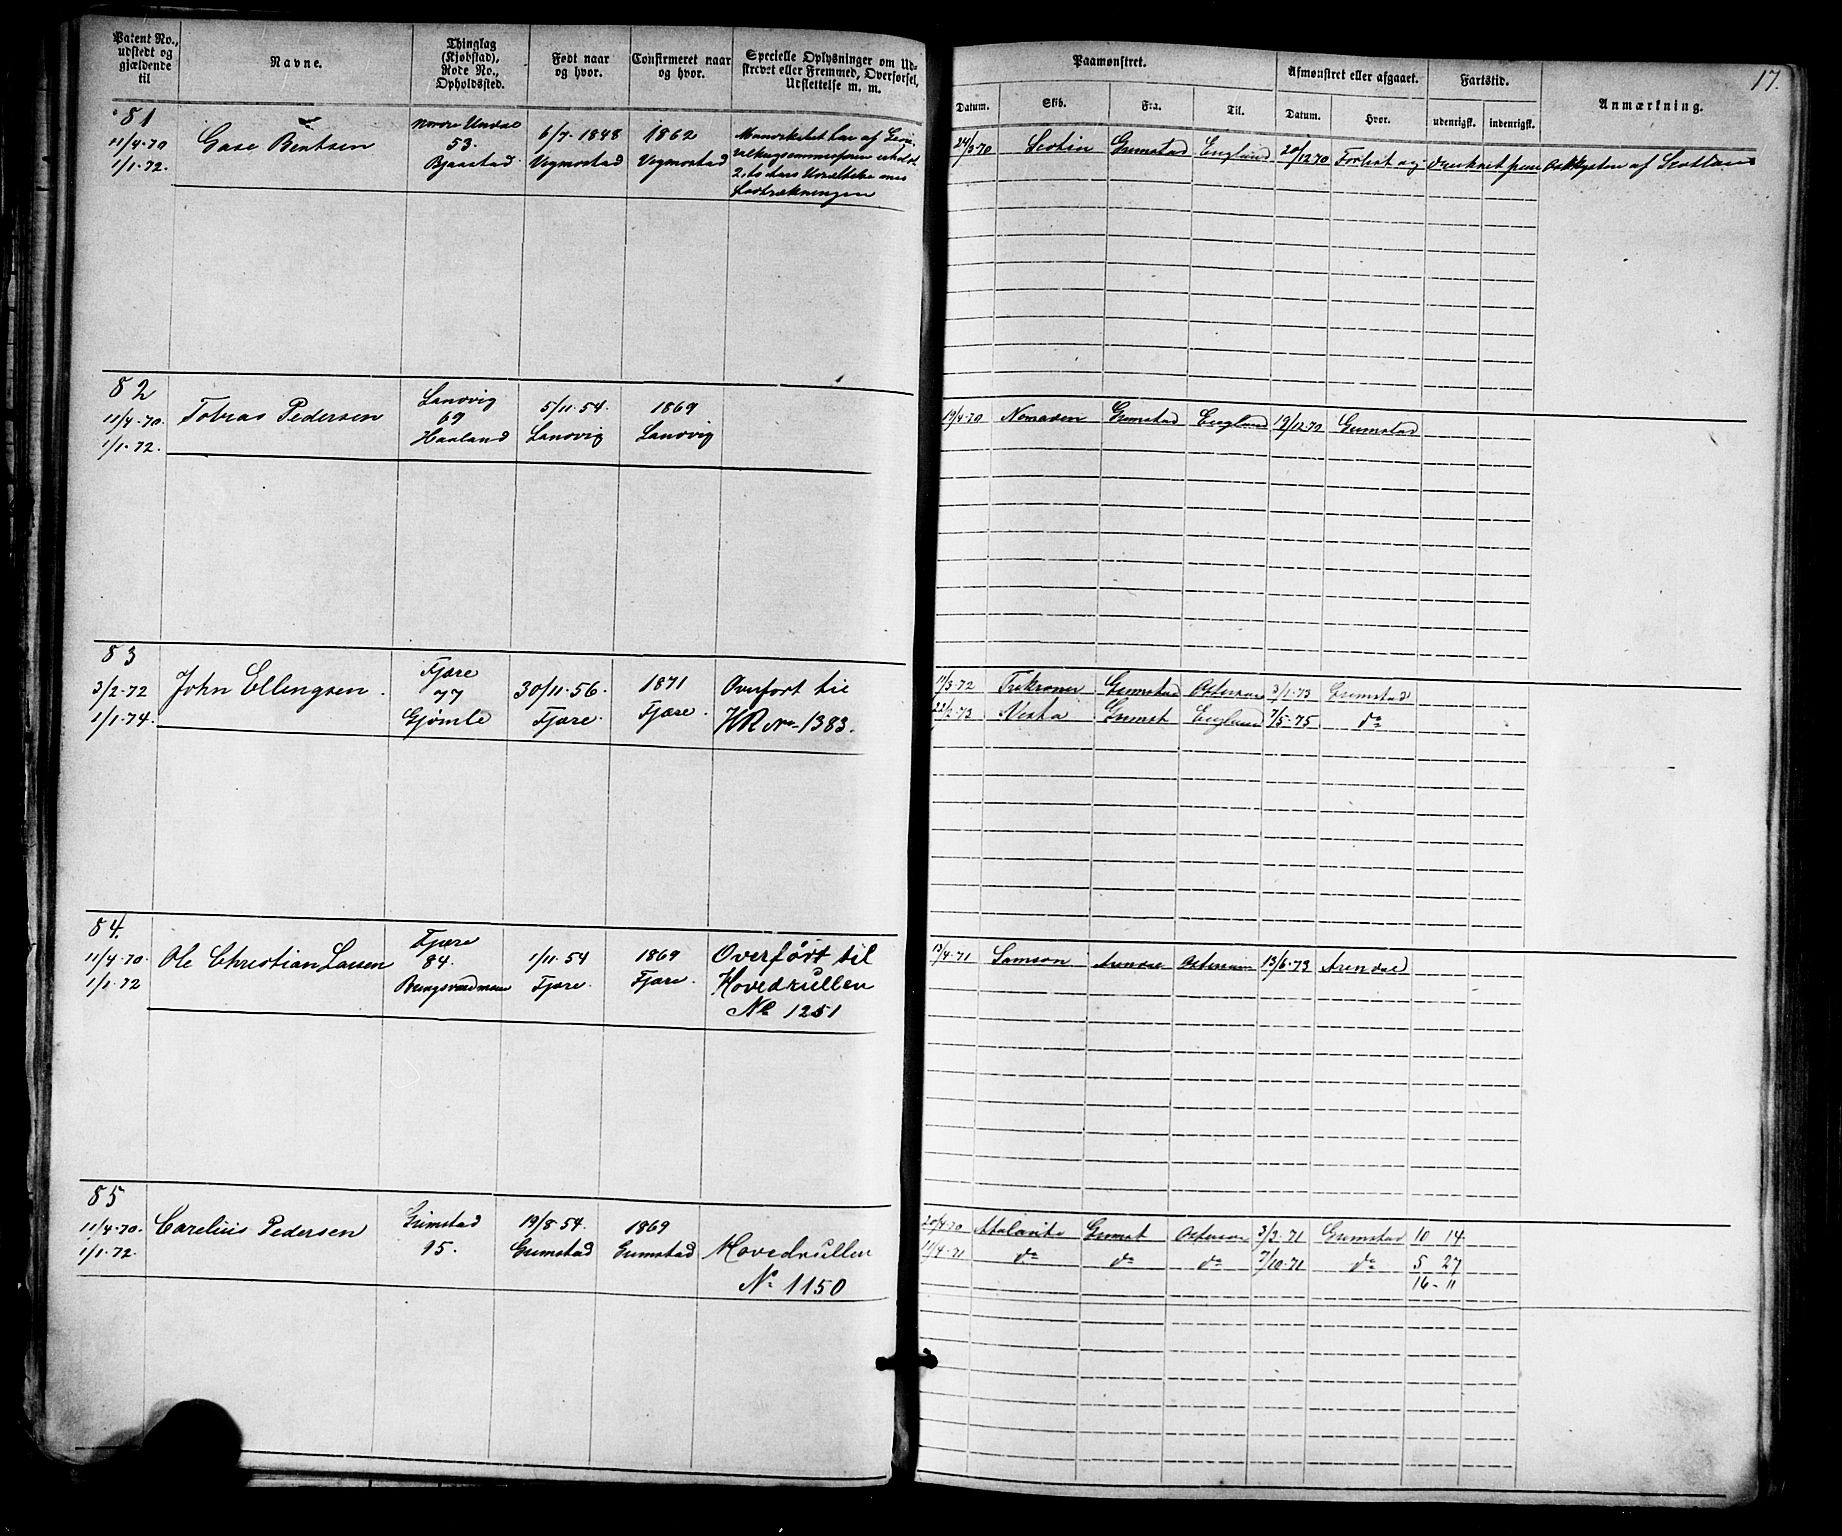 17.
Patent No., udstedt og gjældende til
Navne.
Thinglag (Kjøbstad), Rode No., Opholdssted.
Født naar og hvor.
Confirmeret naar og hvor.
Specielle Oplysninger om Udskrevet eller Fremmed, Overførsel, Udslettelse m. m.
Paamønstret.
Datum.
Skib.
Fra.
Til.
Afmønstret eller afgaaet.
Datum.
Hvor.
Fartstid.
udenrigsk.
indenrigsk.
Anmærkning.
81
11/4-70
1/1-72.
Bentsen
Nordre Undal
53.
Bjaastad
6/7-1848
Vegmostad
1862
Vegmostad
24/3-70 Grimstad England 20/12-70 Forlist og druknet paa Østkysten af
82
11/4-70.
1/1-72.
Tobias Pedersen
Landvig
69
Haaland
5/11-54.
Landvig
1869
Landvig
19/4-70 Grimstad England 19/12-70 Grimstad
83
3/2-72
1/1-74.
John Ellingsen
Fjære
77
Gjømle
30/11-56.
Fjære.
1871
Fjære.
Overført til
HR No-1383.
11/3-72 Trekroner Grimstad 3/1-73 Grimstad
22/2-73 Vesta Grimst England 7/5-75 do
84.
11/4-70.
1/1-72
Ole Christian Larsen
Fjære
84.
1/11-54
Fjære.
1869
Fjære.
Overført til
Hovedrullen
No 1251
13/4-71 Samson Arendal 13/6-73 Arendal
85
11/4-70.
1/1-72.
Carelius Pedersen
Grimstad
95.
19/8-54.
Grimstad
1869
Grimstad
Hovedrullen
No 1150
20/4-70 Grimst 3/3-71 Grimstad 10 14
19/4-71 do do do 7/10-71 do 5 27
16-11